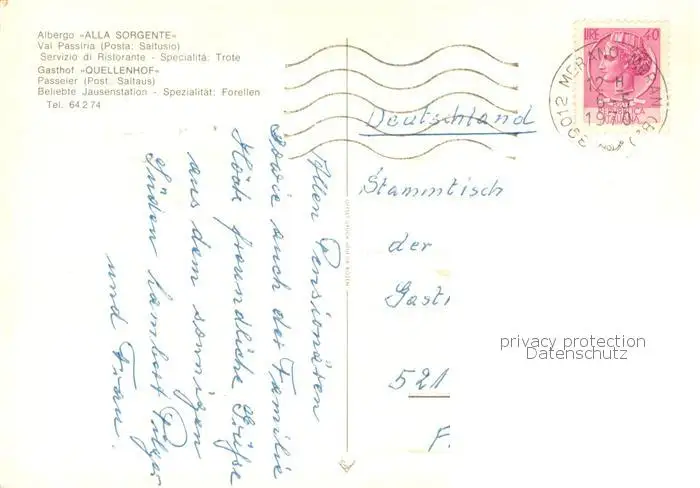 Albergo «ALLA SORGENTE»
Val Passiria (Posta: Saltusio)
Servizio di Ristorante - Specialità: Trote
Gasthof «QUELLENHOF»
Passeier (Post: Saltaus)
Beliebte Jausenstation - Spezialität: Forellen
Tel. 64 2 74
LIRE 40
MERANO MERAN
12 H
6-5
1970
39012
ITALIANA
Deutschland
Stammtisch
der
Gast
521
F.
Allen Pensionären
sowie auch der Familie
Höck freundliche Grüße
aus dem sonnigen
Süden Lambert Pilger
und Frau.
privacy protection
Datenschutz